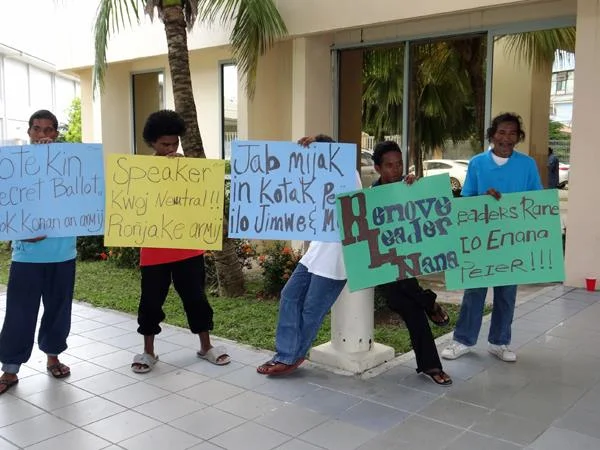 ote kin
ecret Ballot,
ok Konan an armij
Speaker
Kwoj Neutral!!
Ronjake armij
Jab mijak
in Kotak Pe
ilo Jimwe & M
Remove
Leader
Nana
eaders Rane
Eo Enana
Peier!!!